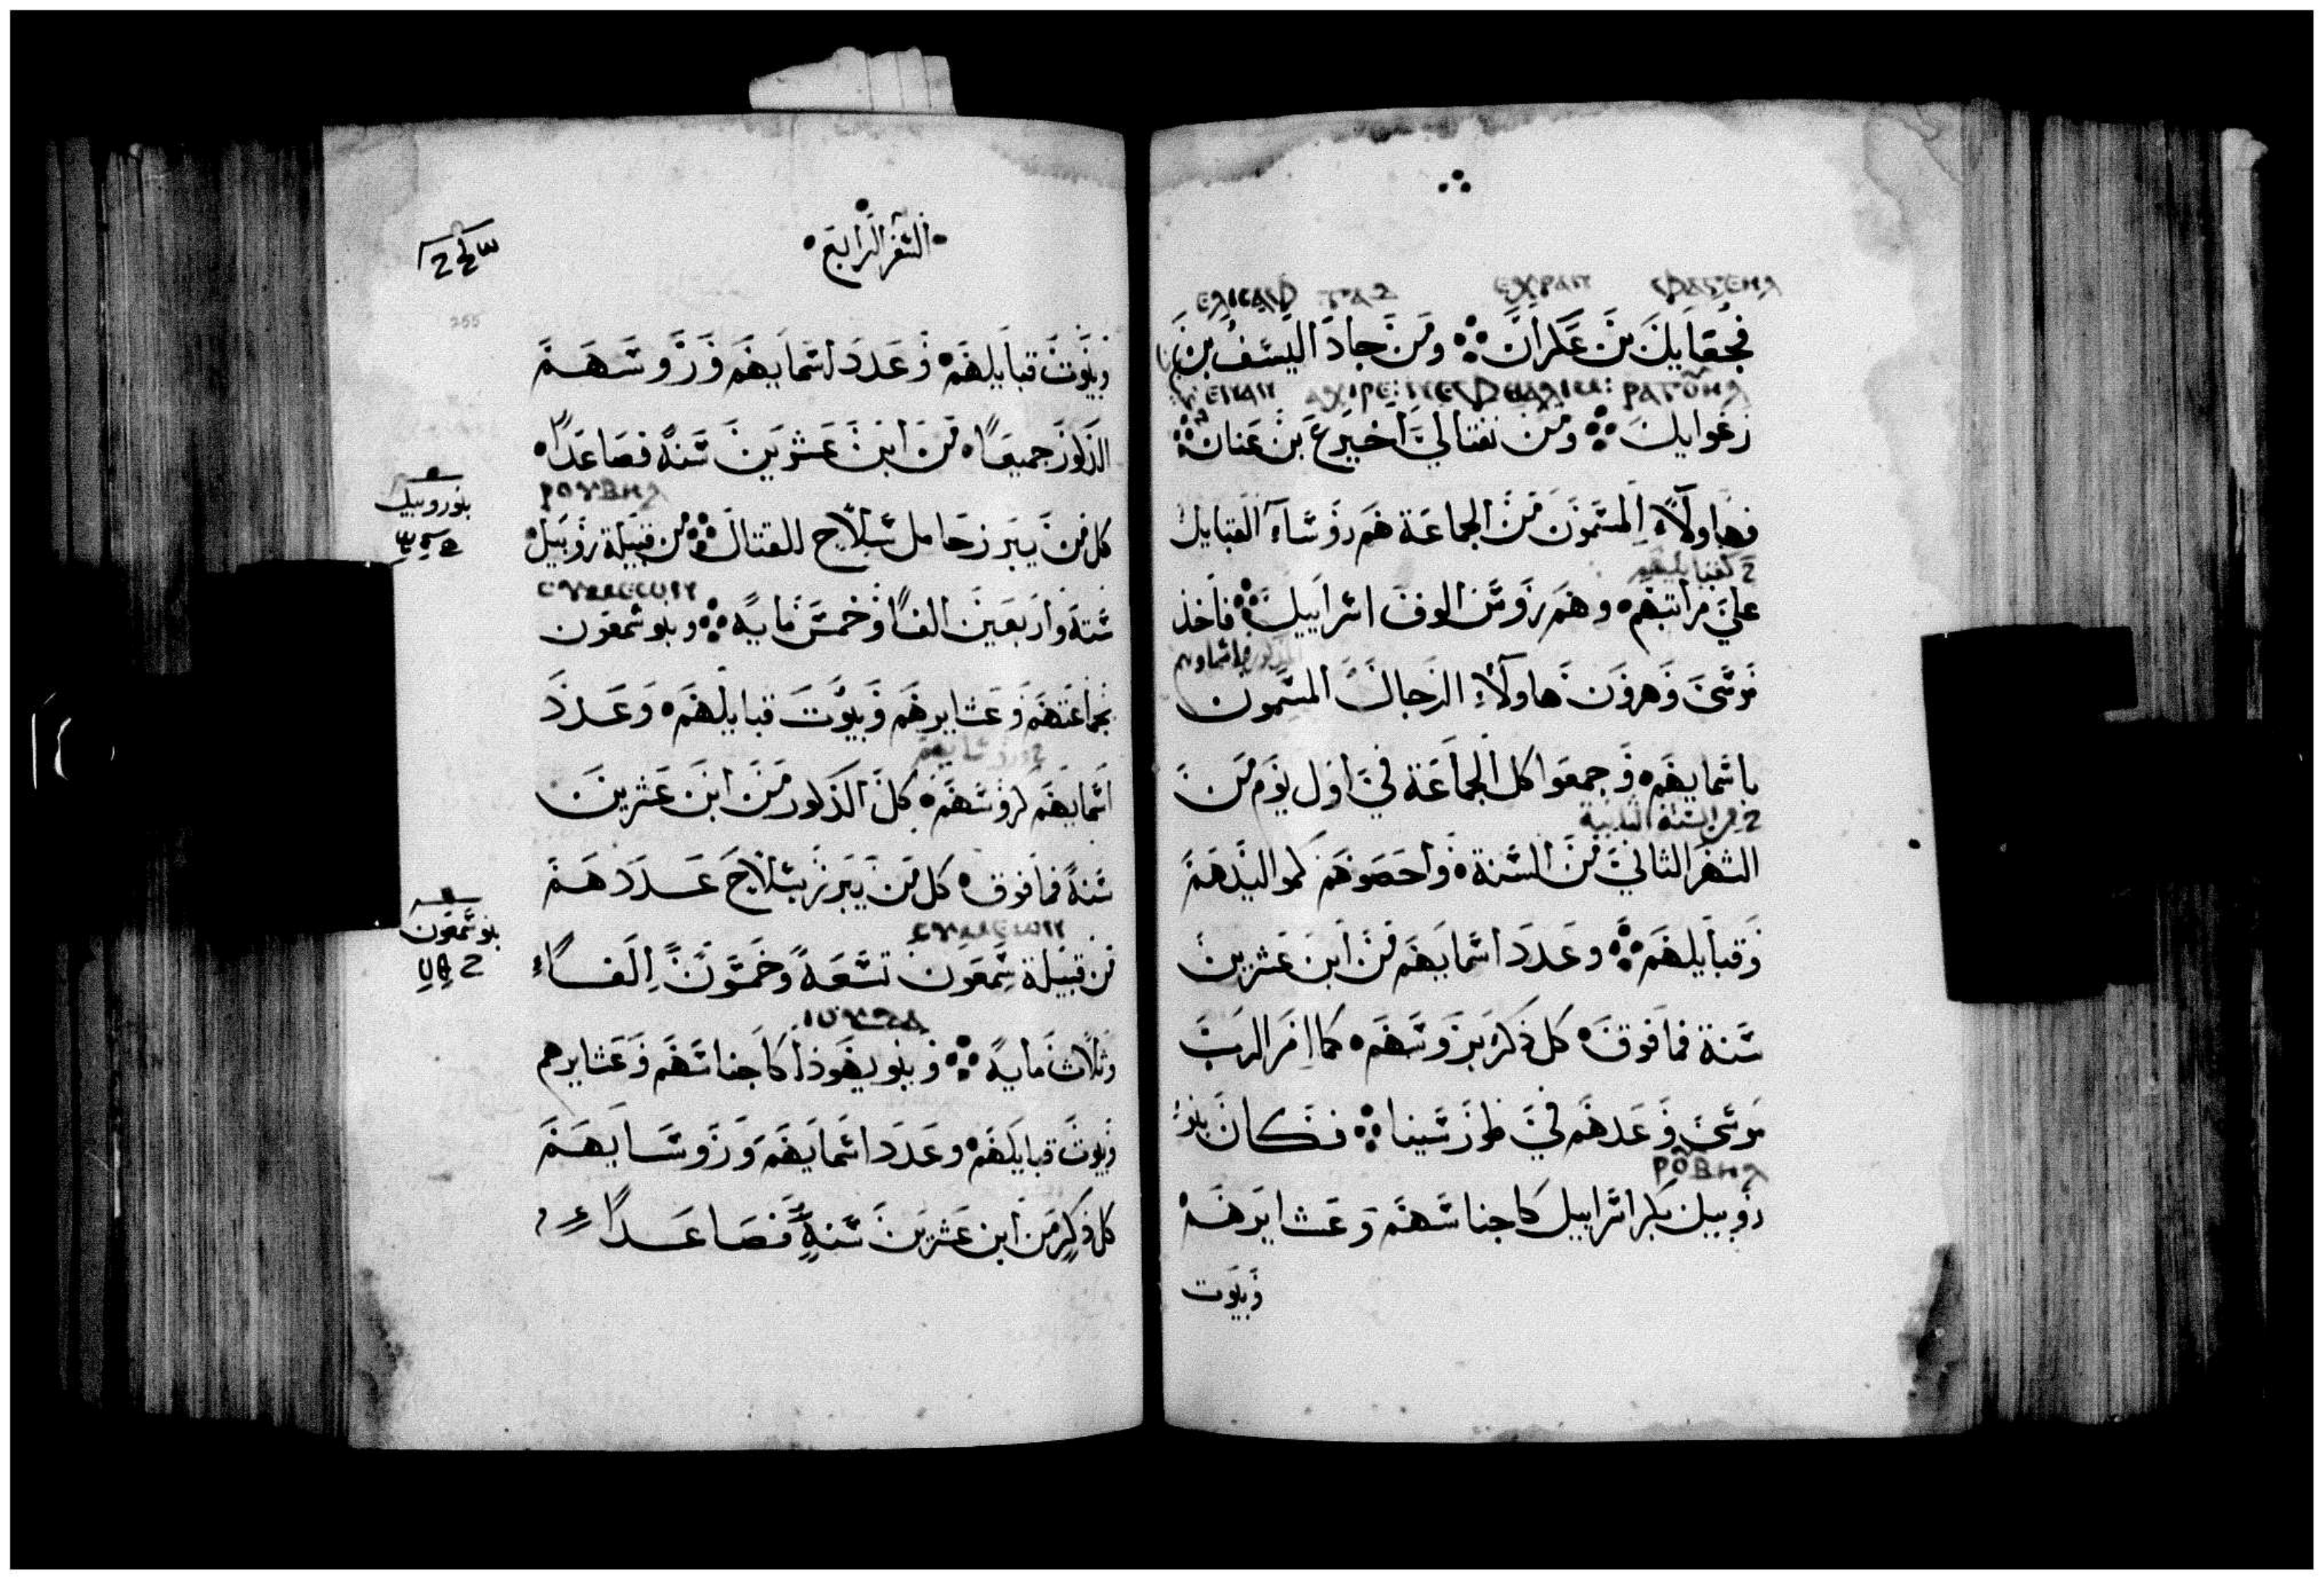 فجعاييل بن عكران ومن جاد اليسف بن
ⲉⲗⲓⲥⲁⲫ
رعواييل ومن نفتالي اخيرع بن عنان
فهاولاء المسمون من الجماعة هم روساء القبايل
علي مراتبهم وهم روس الوف اسراييل فاخذ
موسي وهرون هاولاء الرجال المسمون
باسمايهم وجمعوا كل الجماعة في اول يوم من
من السنة الثانية
الشهر الثاني من السنة واحصوهم كمواليدهم
وقبايلهم وعدد اسمايهم من ابن عشرين
سنة فما فوق كل ذكر بروسهم كما امر الرب
موسي وعدهم في طور سينا فكان بنو
ⲣⲟⲃⲏⲗ
روبيل بكر اسراييل كاجناسهم وعشايرهم
وبيوت
السفر الرابع
255
وبيوت قبايلهم وعدد اسمايهم وروسهم
الذكور جميعا من ابن عشرين سنة فصاعدا
ⲣⲟⲩⲃⲏⲗ
بنو روبيل
كل من يبرز حامل سلاح للقتال من قبيلة روبيل
ستة واربعين الفا وخمس ماية وبنو شمعون
بجماعتهم وعشايرهم وبيوت قبايلهم وعدد
اسمايهم كروسهم كل الذكور من ابن عشرين
سنة فما فوق كل من يبرز بسلاح عددهم
بنو شمعون
من قبيلة شمعون تسعة وخمسون الفا
وثلاث ماية وبنو يهوذا كاجناسهم وعشايرهم
وبيوت قبايلهم وعدد اسمايهم وروسايهم
كل ذكر من ابن عشرين سنة فصاعدا